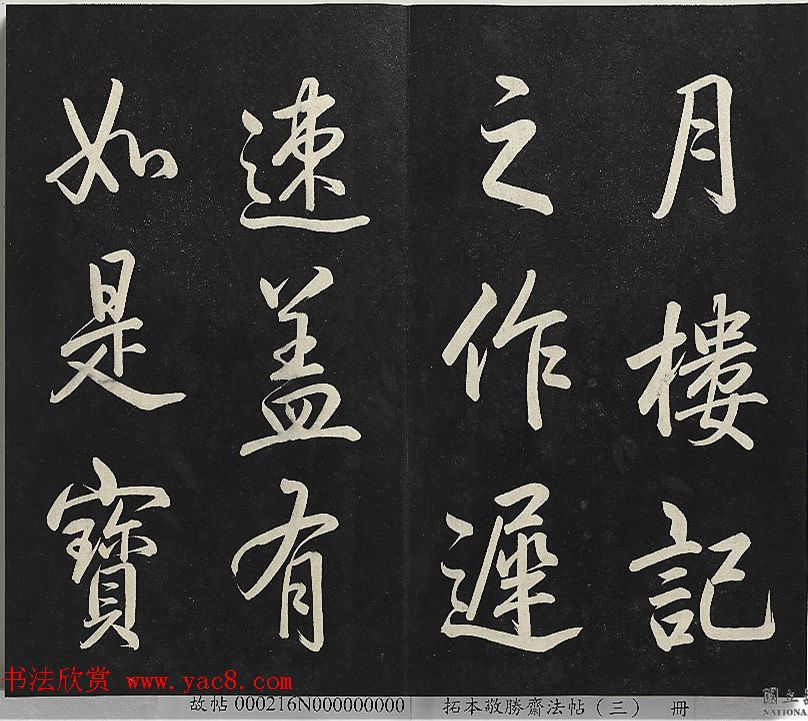 月樓記
之作遲
速盖有
如是寶
书法欣赏 www.yac8.com
故帖 000216N000000000
拓本敬勝齋法帖（三） 冊
國立
NATIONA